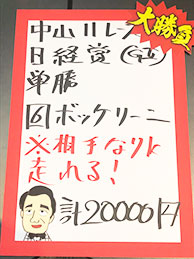 大勝負
中山11レース
日経賞(GⅡ)
単勝
⑥ボッケリーニ
※相手なりに
走れる!
計20000円